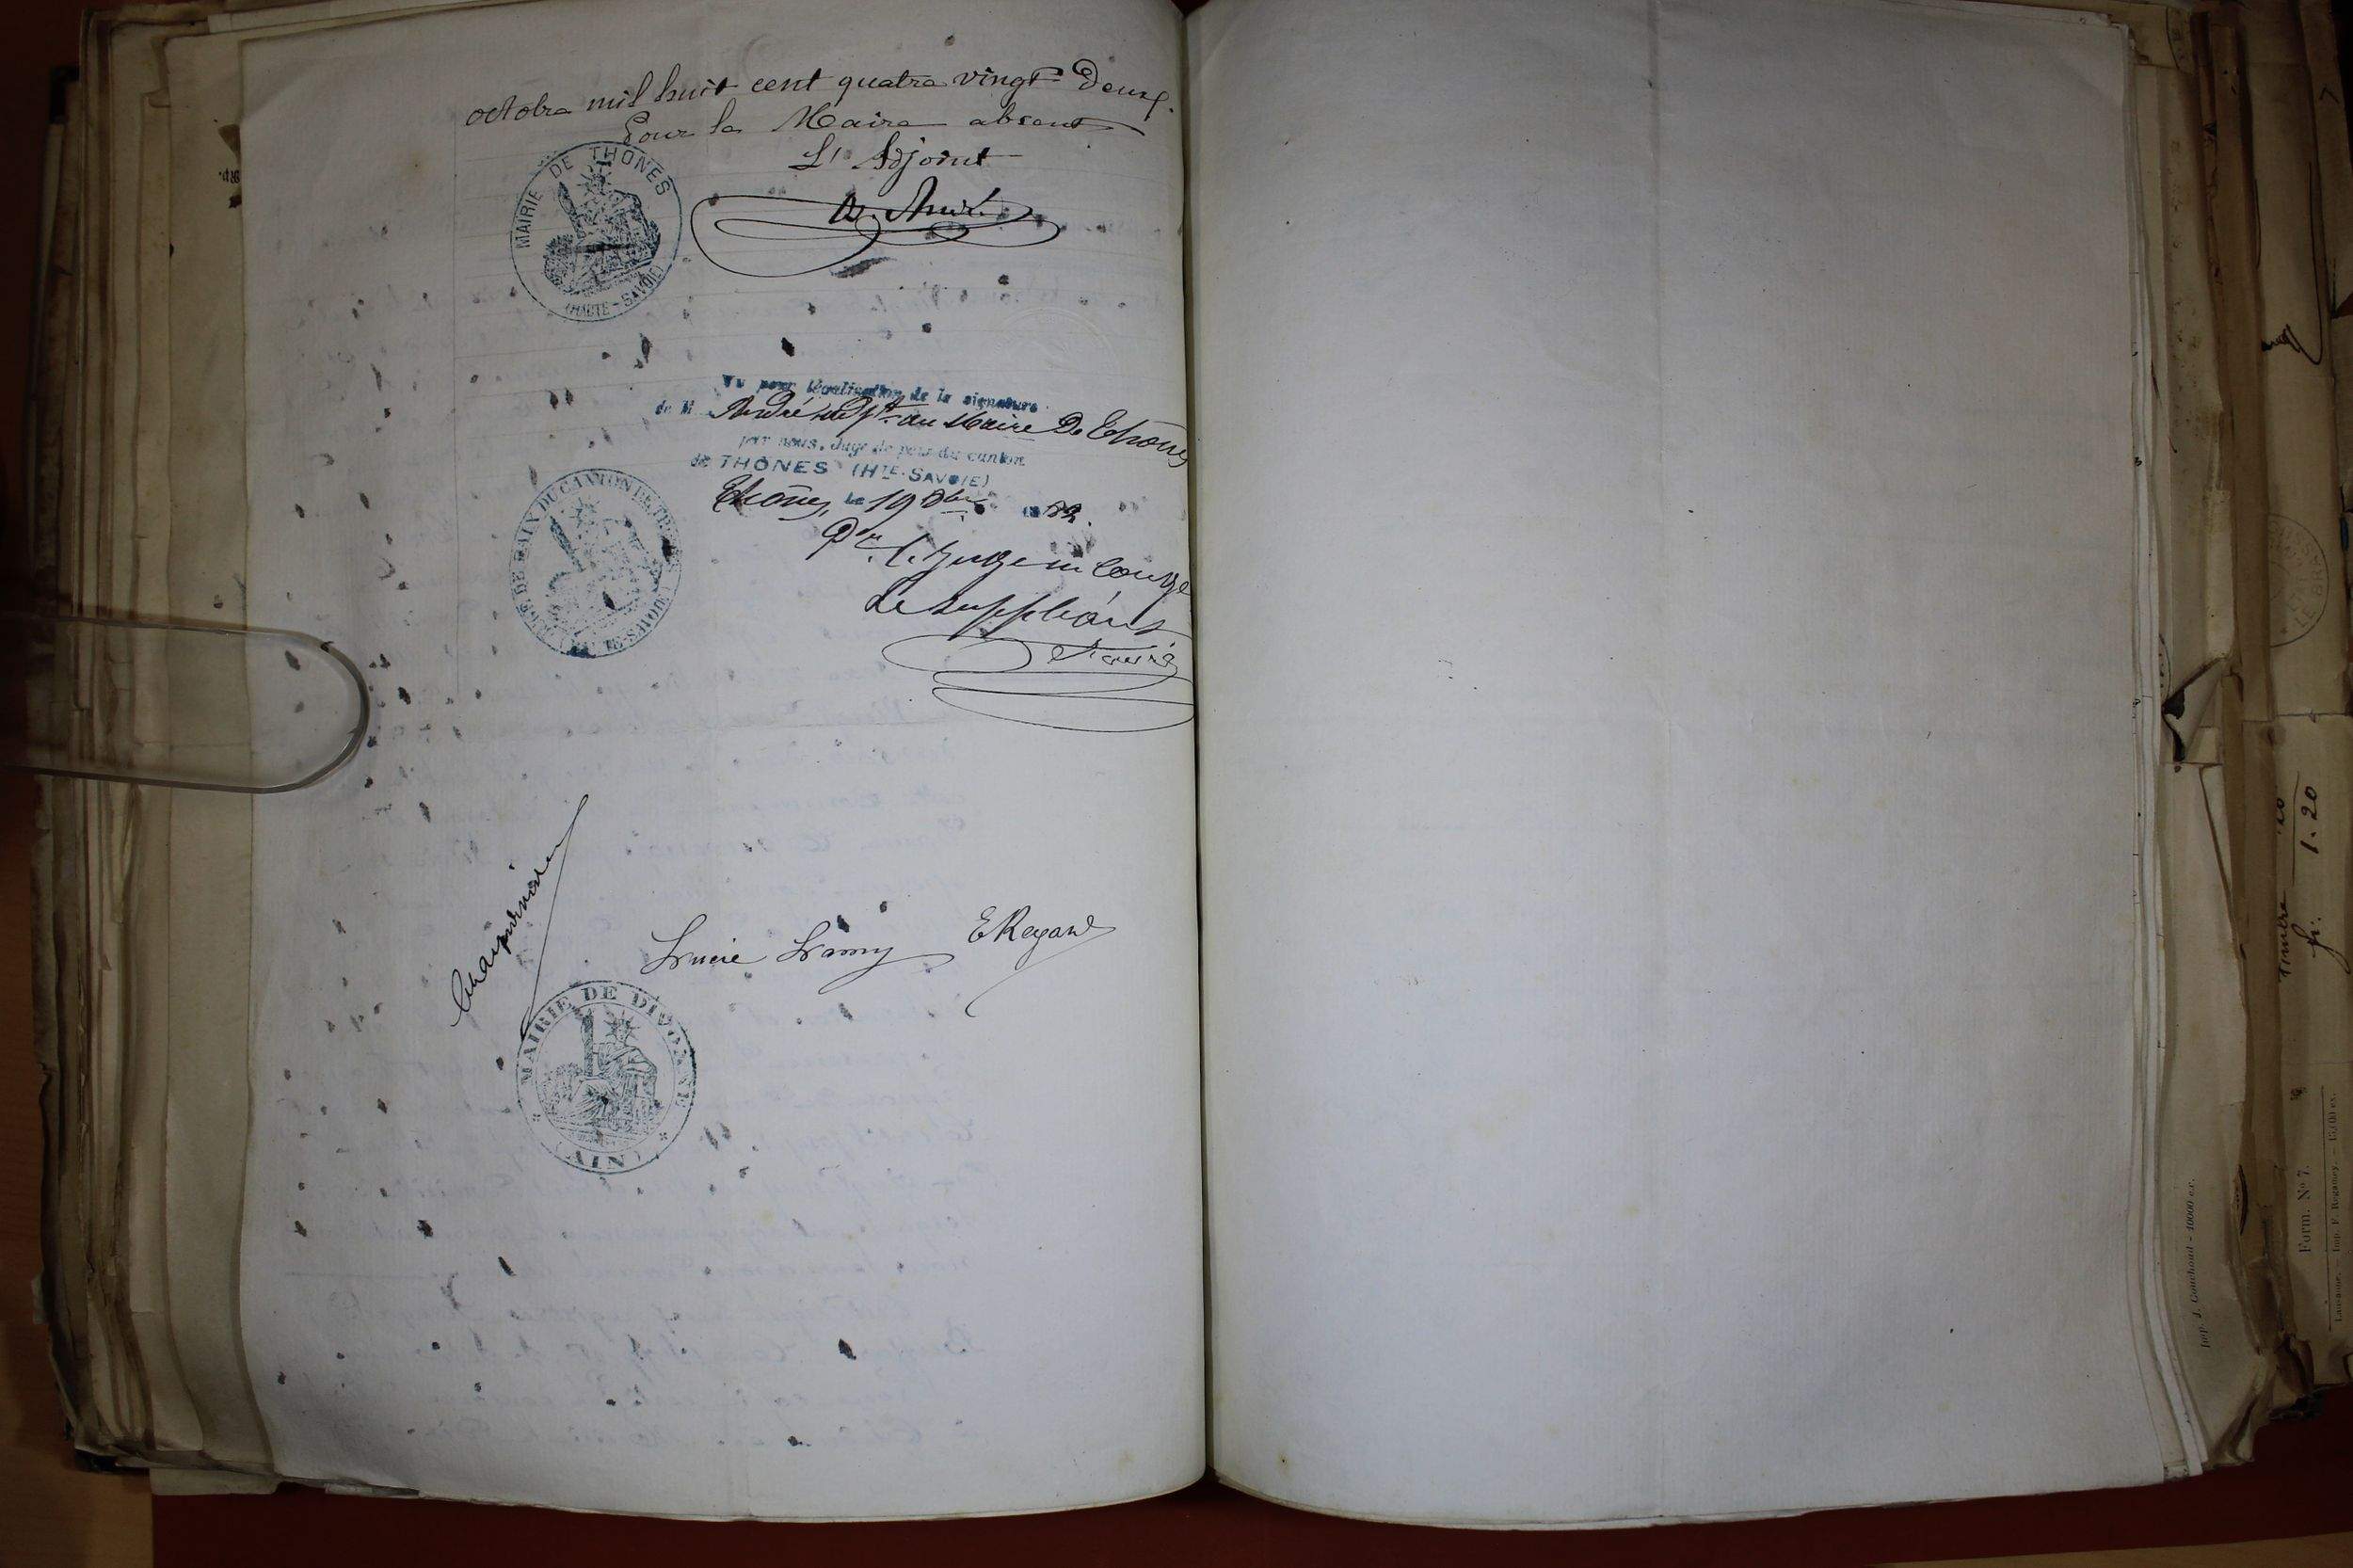 octobre mil huit cent quatre vingt deux.
Pour le Maire absent
L'Adjoint
MAIRIE DE THONES
(HAUTE-SAVOIE)
Vu pour légalisation de la signature
de M André adjt. au Maire De Thônes
par nous, Juge de paix du canton
de THÔNES (HTE-SAVOIE)
Thônes, le 19 8bre 1882.
Pr. le Juge en Congé
Le Suppléant
MAIRIE DE DIVONNE
(AIN)
1.20
fr.
Form. No 7.
Imp. J. Couchoud - 10000 ex.
Lausanne. - Imp. F. Regamey. - 15,000 ex.